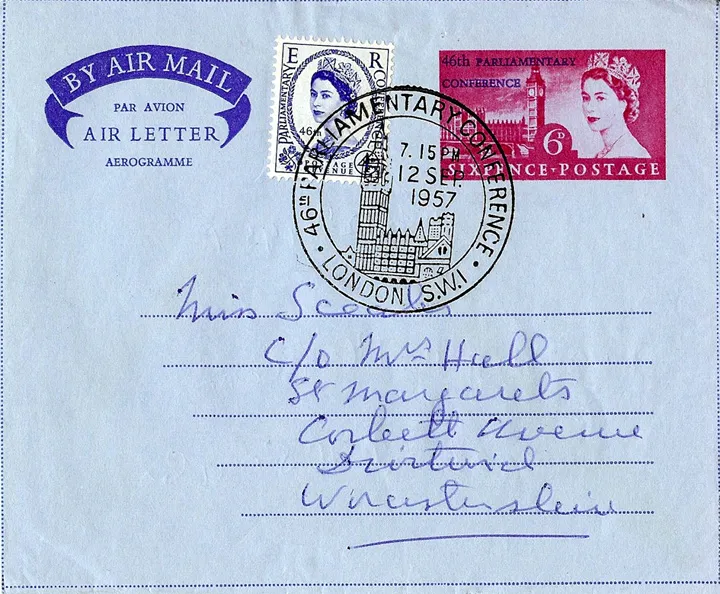 BY AIR MAIL
PAR AVION
AIR LETTER
AEROGRAMME
E R
PARLIAMENTARY
46th
46th PARLIAMENTARY
CONFERENCE
6D
SIXPENCE·POSTAGE
46TH PARLIAMENTARY CONFERENCE
7.15 PM
12 SEP.
1957
LONDON, S.W.1
Miss
C/o Mrs Hall
St Margarets
Corbett Avenue
Droitwich
Worcestershire